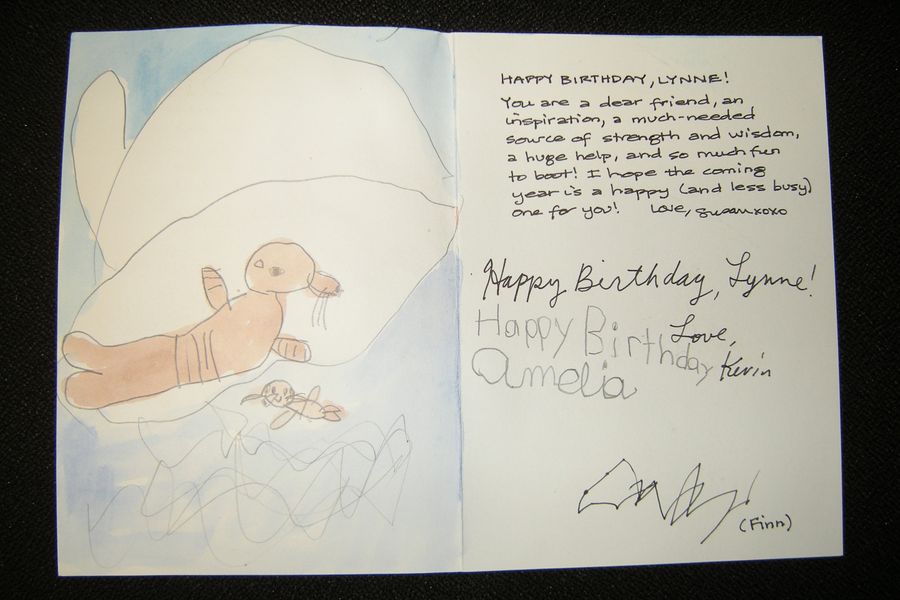 HAPPY BIRTHDAY, LYNNE!
You are a dear friend, an
inspiration, a much-needed
source of strength and wisdom,
a huge help, and so much fun
to boot! I hope the coming
year is a happy (and less busy)
one for you! Love, Susan xoxo
Happy Birthday, Lynne!
Love,
Kevin
Happy Birthday
Amelia
(Finn)